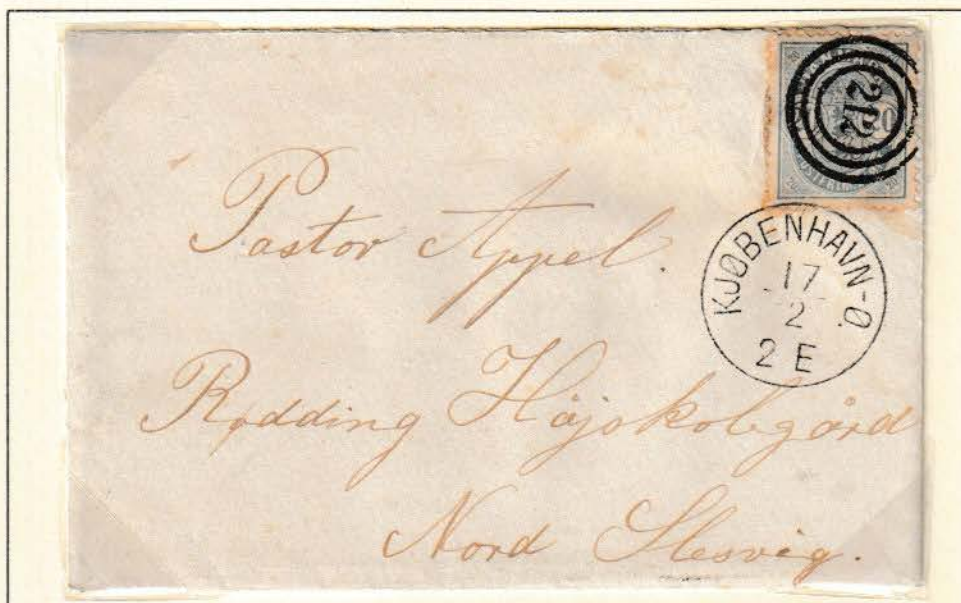 212
20
KJØBENHAVN-Ø.
17
2
2 E
Pastor Appel.
Rødding Højskolegård
Nord Slesvig.